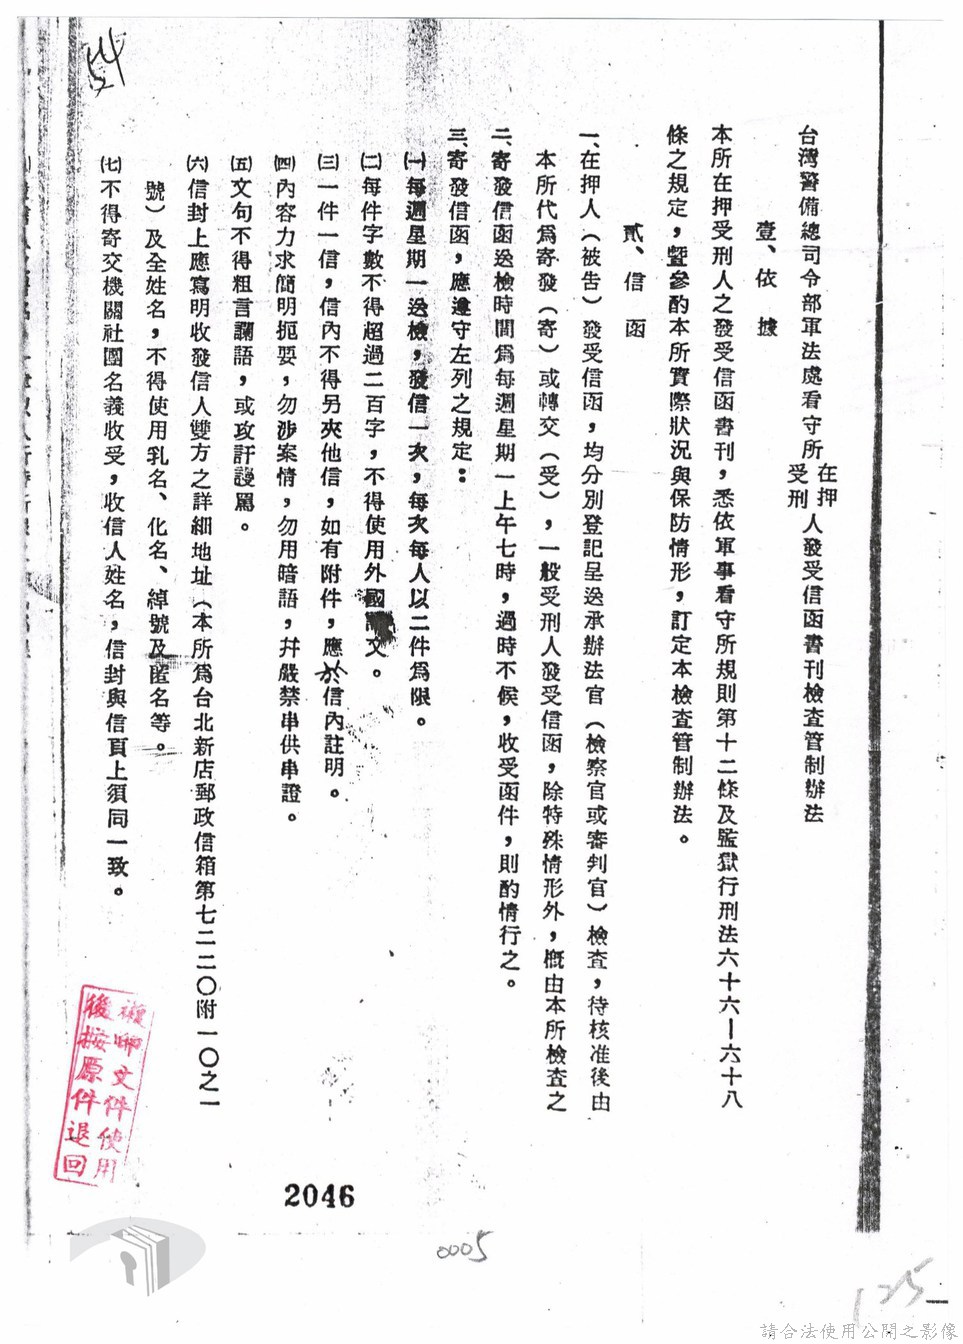 台灣警備總司令部軍法處看守所在押受刑人發受信函書刊檢查管制辦法
壹、依據
本所在押受刑人之發受信函書刊，悉依軍事看守所規則第十二條及監獄行刑法六十六—六十八
條之規定，暨參酌本所實際狀況與保防情形，訂定本檢查管制辦法。
貳、信函
一、在押人（被告）發受信函，均分別登記呈送承辦法官（檢察官或審判官）檢查，待核准後由
本所代為寄發（寄）或轉交（受），一般受刑人發受信函，除特殊情形外，概由本所檢查之
二、寄發信函送檢時間為每週星期一上午七時，過時不候，收受函件，則酌情行之。
三、寄發信函，應遵守左列之規定：
㈠每週星期一送檢，發信一次，每次每人以二件為限。
㈡每件字數不得超過二百字，不得使用外國語文。
㈢一件一信，信內不得另夾他信，如有附件，應於信內註明。
㈣內容力求簡明扼要，勿涉案情，勿用暗語，并嚴禁串供串證。
㈤文句不得粗言讕語，或攻訐謾罵。
㈥信封上應寫明收發信人雙方之詳細地址（本所為台北新店郵政信箱第七二二〇附一〇之一
號）及全姓名，不得使用乳名、化名、綽號及匿名等。
㈦不得寄交機關社團名義收受，收信人姓名，信封與信頁上須同一致。
文件使用
後按原件退回
2046
0005
125
請合法使用公開之影像